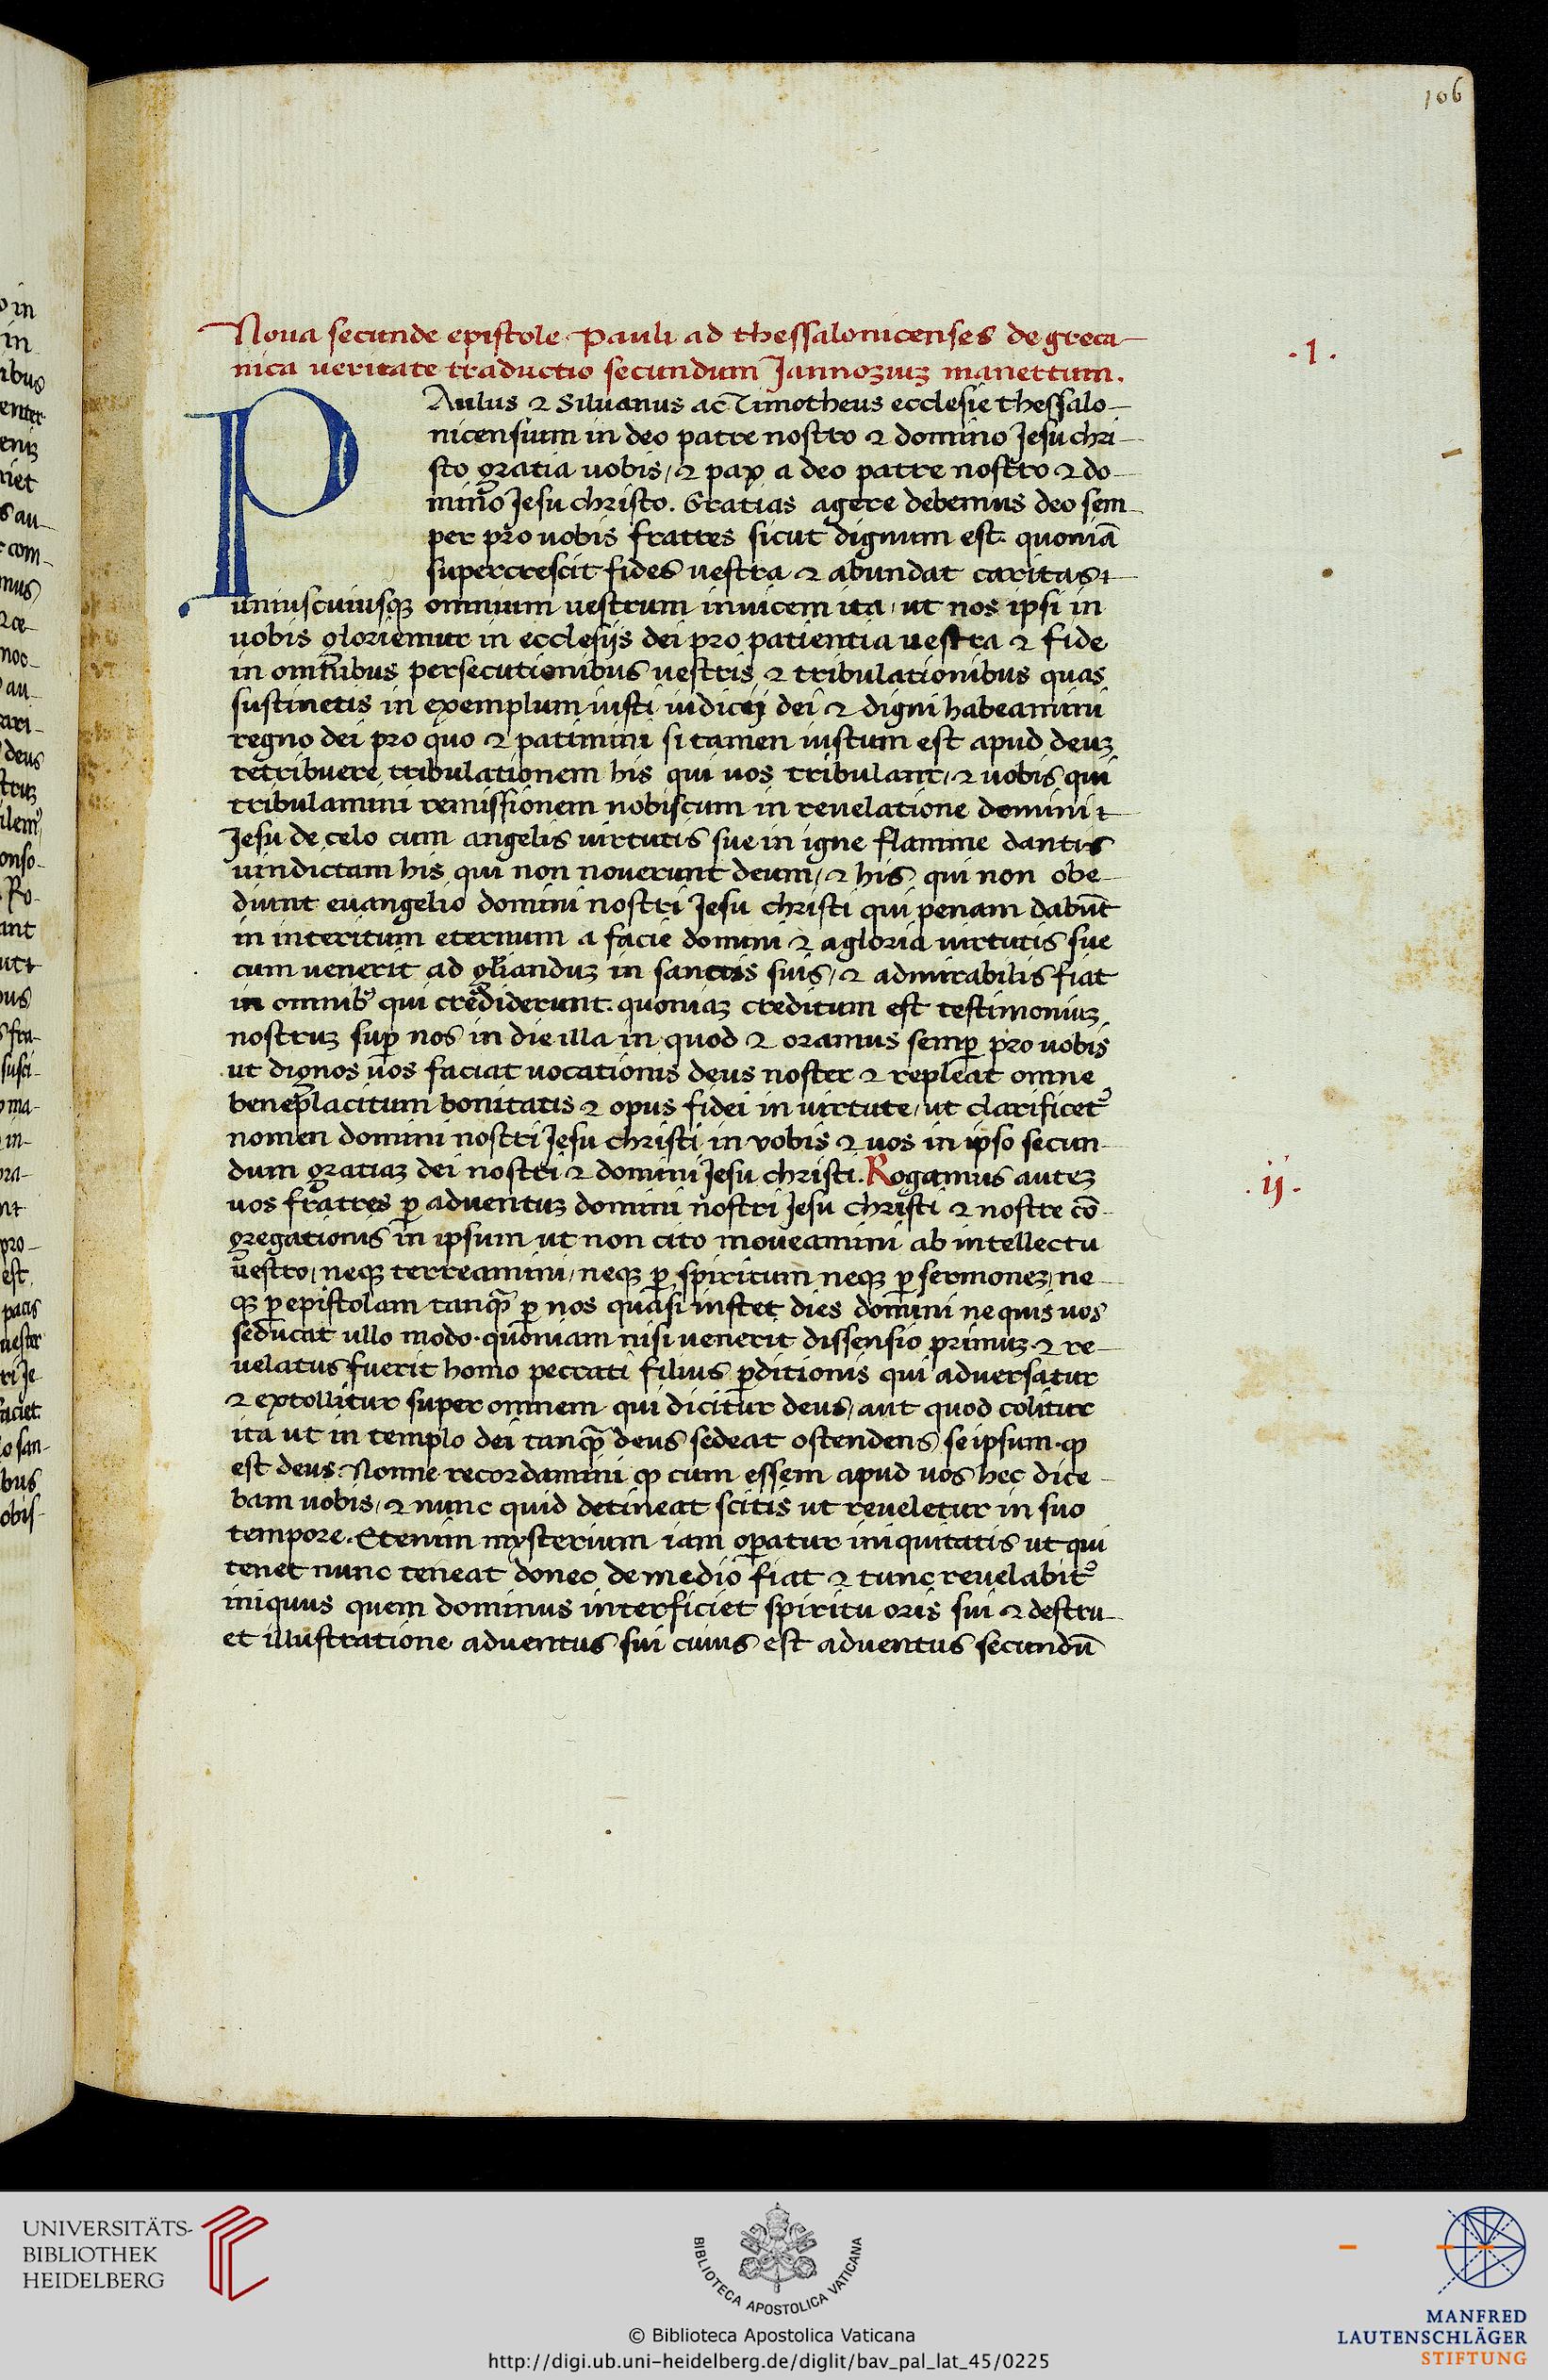 106
Noua secunde epistole Pauli ad thessalonicenses de greca-
nica ueritate traductio secundum Jannoziuꝫ manettum.
.1.
PAulus ⁊ Siluanus ac Timotheus ecclesie thessalo-
nicensium in deo patre nostro ⁊ domino Jesu chri-
sto gratia uobis / ⁊ pax a deo patre nostro ⁊ do-
mino Jesu christo. Gratias agere debemus deo sem-
per pro uobis fratres sicut dignum est. quoniā
supercrescit fides uestra ⁊ abundat caritas
uniuscuiusqꝫ omnium uestrum inuicem ita / ut nos ipsi in
uobis gloriemur in ecclesijs dei pro patientia uestra ⁊ fide
in omnibus persecutionibus uestris ⁊ tribulationibus quas
sustinetis in exemplum iusti iudicij dei ⁊ digni habeamini
regno dei pro quo ⁊ patimini si tamen iustum est apud deuꝫ
retribuere tribulationem his qui uos tribulant / ⁊ uobis qui
tribulamini remissionem nobiscum in reuelatione domini
Jesu de celo cum angelis uirtutis sue in igne flamme dantis
uindictam his qui non nouerunt deum / ⁊ his qui non obe-
diunt euangelio domini nostri Jesu christi qui penam dabūt
in interitum eternum a facie domini ⁊ a gloria uirtutis sue
cum uenerit ad gl̄ianduꝫ in sanctis suis / ⁊ admirabilis fiat
in omnibꝰ qui crediderunt. quoniaꝫ creditum est testimoniuꝫ
nostruꝫ suꝑ nos in die illa in quod ⁊ oramus semꝑ pro uobis
ut dignos uos faciat uocationis deus noster ⁊ repleat omne
beneplacitum bonitatis ⁊ opus fidei in uirtute / ut clarificetᷣ
nomen domini nostri Jesu christi in vobis ⁊ uos in ipso secun-
dum gratiaꝫ dei nostri ⁊ domini Jesu christi. Rogamus auteꝫ
.ij.
uos fratres ꝑ aduentuꝫ domini nostri Jesu christi ⁊ nostre cō-
gregationis in ipsum ut non cito moueamini ab intellectu
uestro / neqꝫ terreamini / neqꝫ ꝑ spiritum neqꝫ ꝑ sermoneꝫ / ne-
qꝫ ꝑ epistolam tanqꝫ̄ ꝑ nos quasi instet dies domini ne quis uos
seducat ullo modo. quoniam nisi uenerit dissensio primuꝫ ⁊ re-
uelatus fuerit homo peccati filius ꝑditionis qui aduersatur
⁊ extollitur super omnem qui dicitur deus / aut quod colitur
ita ut in templo dei tanqꝫ̄ deus sedeat ostendens se ipsum ꝙ
est deus. Nonne recordamini ꝙ cum essem apud uos hec dice-
bam uobis / ⁊ nunc quid detineat scitis ut reueletur in suo
tempore. Etenim mysterium iam oꝑatur iniquitatis ut qui
tenet nunc teneat donec de medio fiat ⁊ tunc reuelabitᷣ
iniquus quem dominus interficiet spiritu oris sui ⁊ destru-
et illustratione aduentus sui cuius est aduentus secundū
UNIVERSITÄTS-
BIBLIOTHEK
HEIDELBERG
BIBLIOTECA APOSTOLICA VATICANA
© Biblioteca Apostolica Vaticana
http://digi.ub.uni-heidelberg.de/diglit/bav_pal_lat_45/0225
MANFRED
LAUTENSCHLÄGER
STIFTUNG